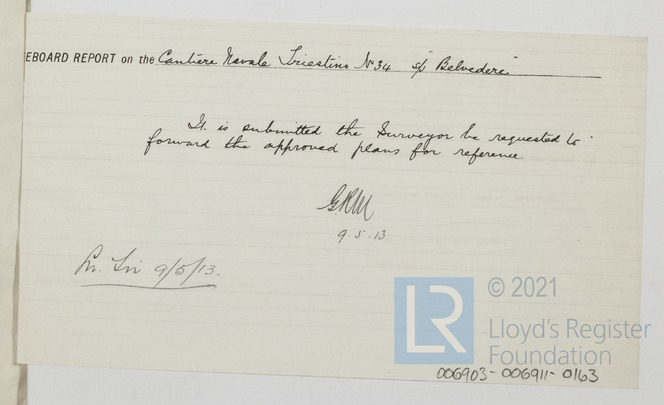 EBOARD REPORT on the Cantiere Navale Triestino No 34 S/S "Belvedere"
It is submitted the Surveyor be requested to
forward the approved plans for reference
9.5.13
9/5/13.
LR
© 2021
Lloyd's Register
Foundation
006903-006911-0163